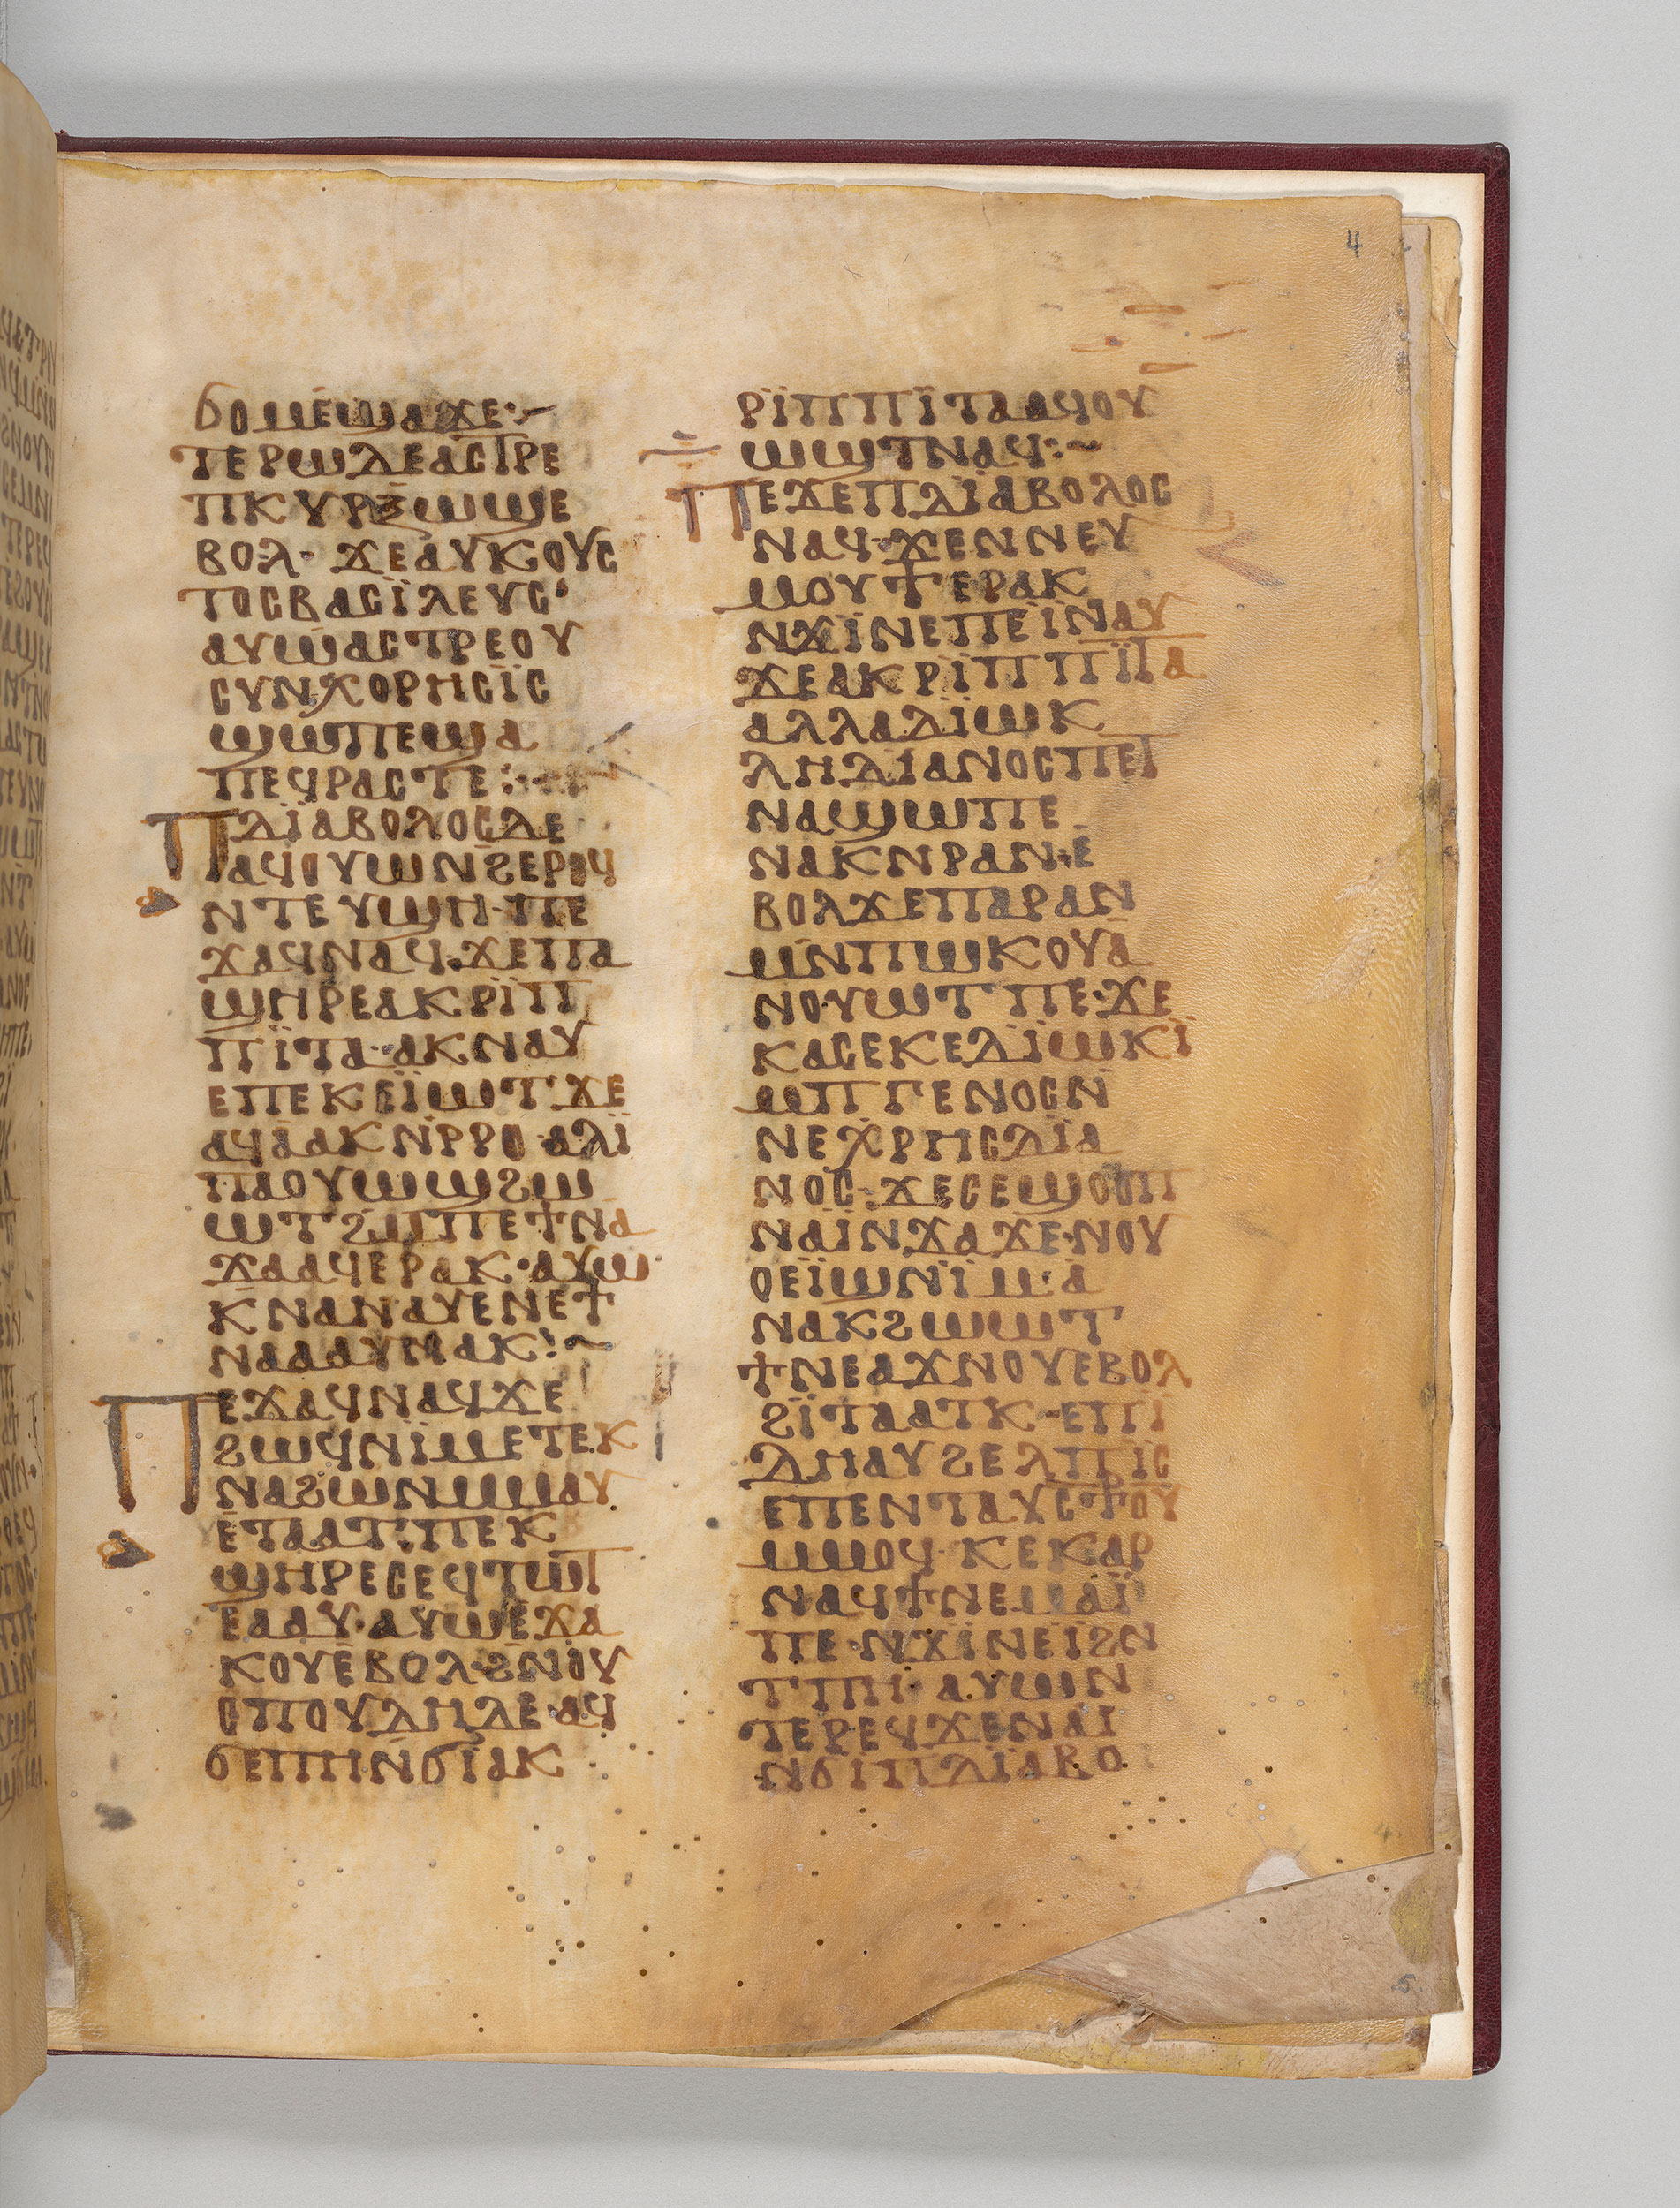 4
ϭⲟⲙⲉ̇ϣⲁϫⲉ·⁓
ⲧⲉⲣⲱⲇⲉⲁⲥⲧⲣⲉ
ⲡⲕⲩⲣⲍ̄ⲱϣⲉ
ⲃⲟⲗ· ϫⲉⲁⲩⲕⲟⲩⲥ
ⲧⲟⲥⲃⲁⲥⲓ̈ⲗⲉⲩⲥ·
ⲁⲩⲱⲁⲥⲧⲣⲉⲟⲩ
ⲥⲩⲛⲭⲟⲣⲏⲥⲓ̈ⲥ
ϣⲱⲡⲉϣⲁ
ⲡⲉϥⲣⲁⲥⲧⲉ:
ⲡⲇⲓ̈ⲁⲃⲟⲗⲟⲥⲇⲉ
ⲁϥⲟⲩⲱⲛϩⲉⲣⲟϥ
ⲛⲧⲉⲩϣⲏ·ⲡⲉ
ϫⲁϥⲛⲁϥ·ϫⲉⲡⲁ
ϣⲏⲣⲉⲁⲕⲣⲓ̈ⲡ
ⲡⲓ̈ⲧⲁ·ⲁⲕⲛⲁⲩ
ⲉⲡⲉⲕⲉⲓ̈ⲱⲧϫⲉ
ⲁϥⲁⲁⲕⲛ̇ⲣⲣⲟ·ⲁⲗⲓ̈
ⲡⲁⲟⲩⲱϣϩⲱ
ⲱⲧϩⲙⲡⲉϯⲛⲁ
ϫⲁⲁϥⲉⲣⲁⲕ·ⲁⲩⲱ
ⲕⲛⲁⲛⲁⲩⲉⲛⲉϯ
ⲛⲁⲁⲁⲩⲛⲁⲕ:⁓
ⲡⲉϫⲁϥⲛⲁϥϫⲉ
ϩⲱϥⲛⲓ̈ⲙⲉⲧⲉⲕ
ⲛⲁϩⲱⲛⲙⲙⲁⲩ
ⲉ̇ⲧⲁⲁⲧ:ⲡⲉⲕ
ϣⲏⲣⲉⲥⲉϥⲧⲱⲧ
ⲉⲁⲁⲩ·ⲁⲩⲱⲉ̇ϫⲁ
ⲕⲟⲩⲉ̇ⲃⲟⲗ·ϩⲛ̇ⲟⲩ
ⲥⲡⲟⲩⲇⲏⲇⲉ·ⲁϥ
ϭⲉⲡⲏⲛ̇ϭⲓⲁⲕ
ⲣⲓ̈ⲡⲡⲓ̈ⲧⲁⲁϥⲟⲩ
ⲱϣⲧⲛⲁϥ:⁓
ⲡⲉϫⲉⲡⲇⲓ̈ⲁⲃⲟⲗⲟⲥ
ⲛⲁϥ·ϫⲉⲛⲛⲉⲩ
ⲙⲟⲩϯⲉⲣⲁⲕ
ⲛϫⲓ̇ⲛⲉⲡⲉⲓ̇ⲛⲁⲩ
ϫⲉⲁⲕⲣⲓ̇ⲡⲡⲓ̈ⲧⲁ
ⲁⲗⲗⲁⲇⲓ̇ⲱⲕ
ⲗⲏⲇⲓ̇ⲁⲛⲟⲥⲡⲉⲧ
ⲛⲁϣⲱⲡⲉ
ⲛⲁⲕⲛⲣⲁⲛ·ⲉ̇
ⲃⲟⲗϫⲉⲡⲁⲣⲁⲛ
ⲙⲛ̇ⲡⲱⲕⲟⲩⲁ
ⲛⲟⲩⲱⲧⲡⲉ·ϫⲉ
ⲕⲁⲥⲉⲕⲉⲇⲓ̈ⲱⲕⲓ̈
ⲙⲡⲅⲉⲛⲟⲥⲛ̇
ⲛⲉⲭⲣⲏⲥⲇⲓ̇ⲁ
ⲛⲟⲥ·ϫⲉⲥⲉϣⲟⲟⲡ
ⲛⲁⲓ̈ⲛϫⲁϫⲉ·ⲛⲟⲩ
ⲟⲉⲓ̈ϣⲛⲓ̈ⲙ·ⲁ
ⲛⲁⲕϩⲱⲱⲧ
ϯⲛⲉⲁϫⲛⲟⲩⲉⲃⲟⲗ
ϩⲓ̈ⲧⲁⲁⲧⲕ·ⲉⲡⲓ̇
ⲇⲏⲁⲩϩⲉⲗⲡⲓ̇ⲥ
ⲉⲡⲉⲛⲧⲁⲩⲥϯⲟⲩ
ⲙⲙⲟϥ·ⲕⲉⲕⲁⲣ
ⲛⲁϥϯⲛⲉⲙⲁⲓ̈
ⲡⲉ·ⲛϫⲓ̇ⲛⲉⲓ̇ϩⲛ
ⲧⲡⲏ·ⲁⲩⲱⲛ
ⲧⲉⲣⲉϥϫⲉⲛⲁⲓ̇
ⲛϭⲓⲡⲇⲓ̈ⲁⲃⲟ